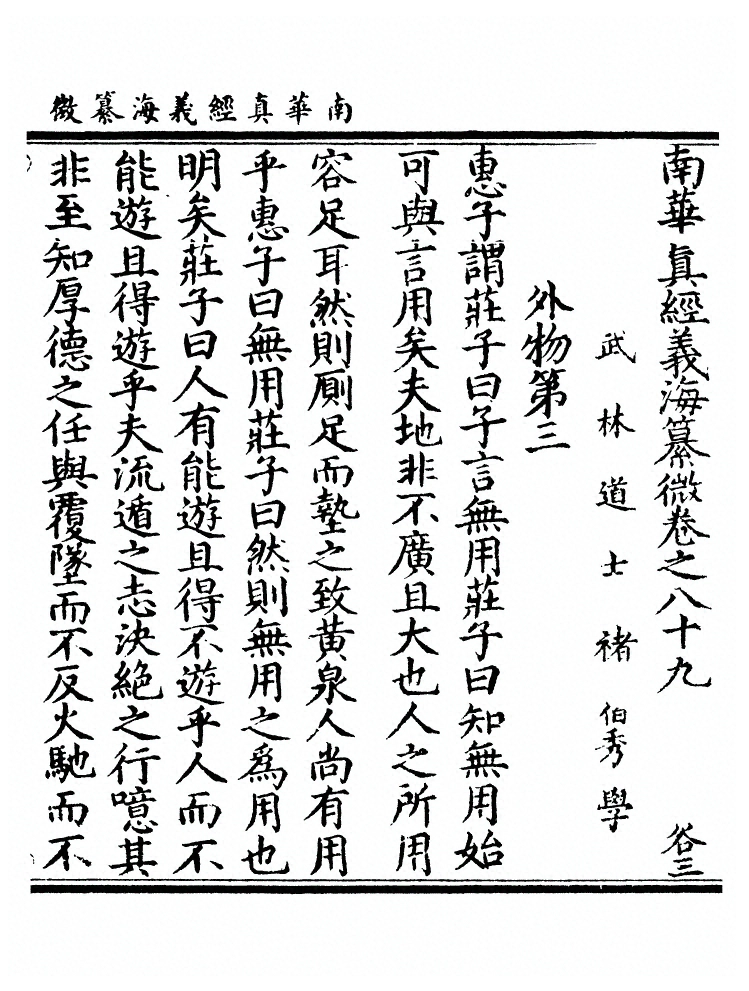 南華真經義海纂微
南華真經義海纂微卷之八十九
谷三
武林道士褚伯秀學
外物第三
惠子謂莊子曰子言無用莊子曰知無用始
可與言用矣夫地非不廣且大也人之所用
容足耳然則厠足而墊之致黃泉人尚有用
乎惠子曰無用莊子曰然則無用之為用也
明矣莊子曰人有能遊且得不遊乎人而不
能遊且得遊乎夫流遁之志決絕之行噫其
非至知厚德之任與覆墜而不反火馳而不